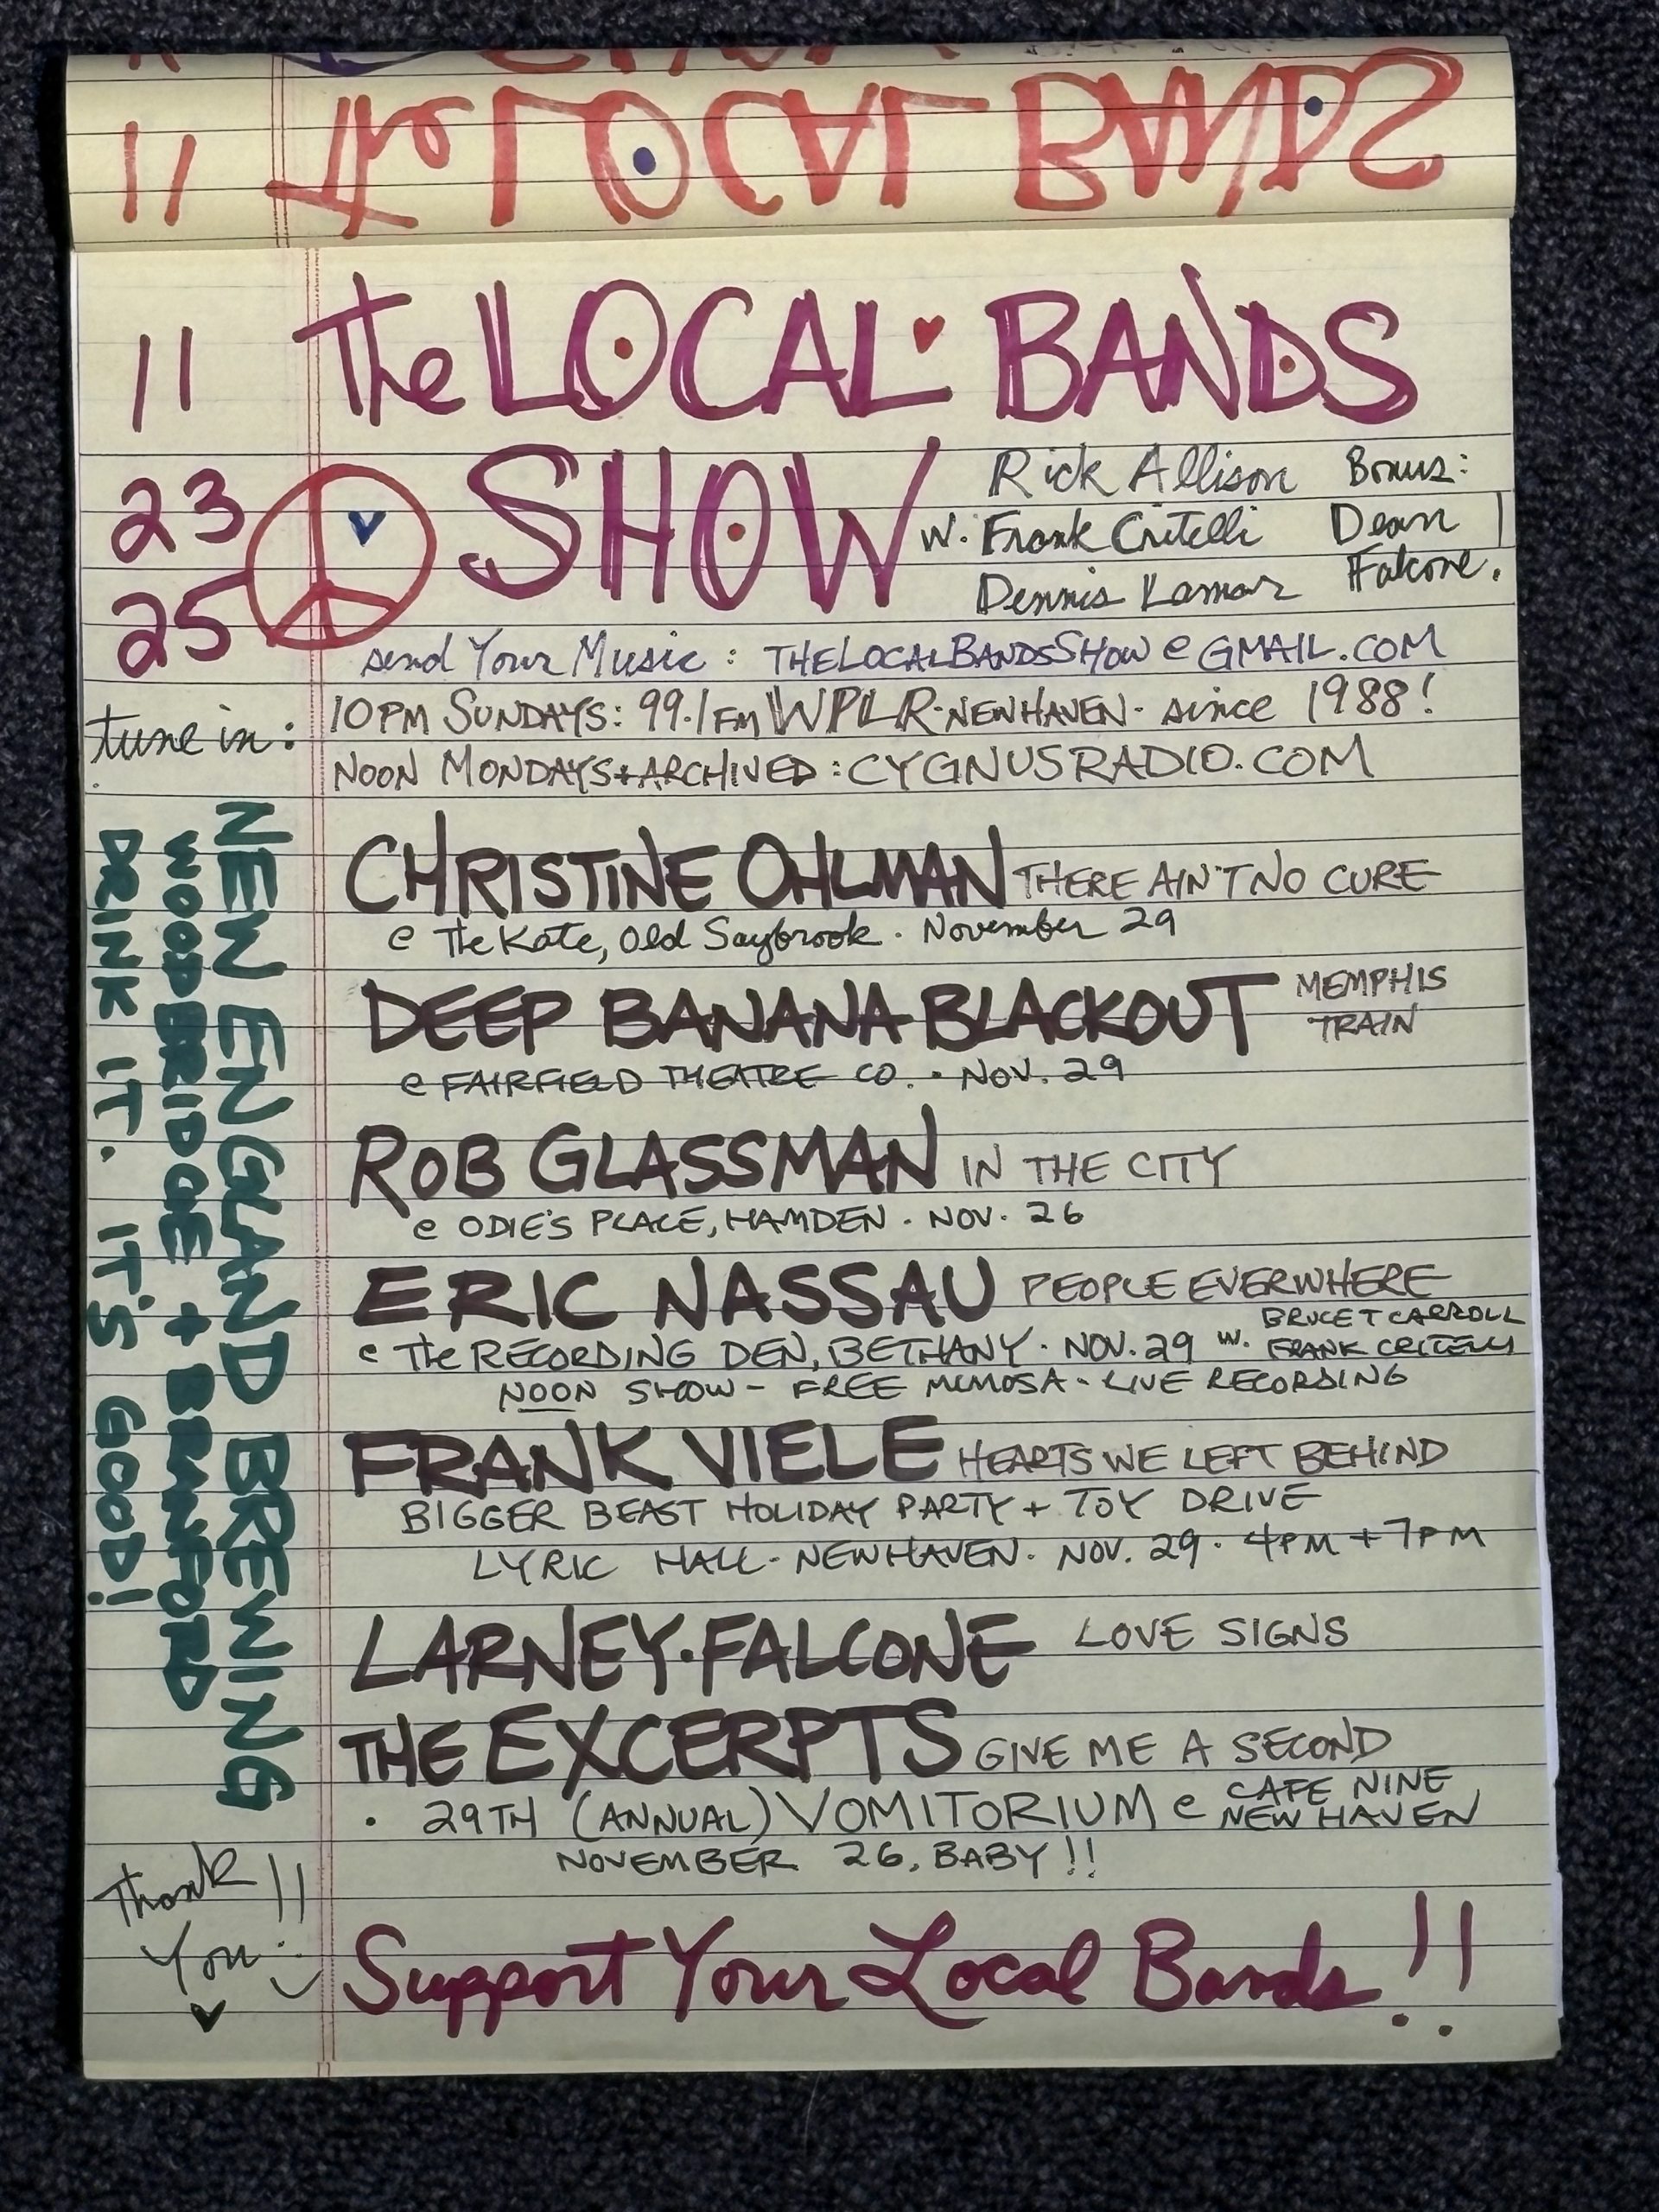 The LOCAL BANDS
11
The LOCAL BANDS
SHOW
11
23
25
Rick Allison
w. Frank Critelli
Dennis Lamar
Bonus:
Dean
Falcone.
send Your Music: THELOCALBANDSSHOW@GMAIL.COM
tune in:
10PM SUNDAYS: 99.1FM WPLR·NEWHAVEN· since 1988!
NOON MONDAYS+ARCHIVED:CYGNUSRADIO.COM
CHRISTINE OHLMAN THERE AIN'T NO CURE
@ The Kate, Old Saybrook · November 29
DEEP BANANA BLACKOUT MEMPHIS
TRAIN
@ FAIRFIELD THEATRE CO. · NOV. 29
ROB GLASSMAN IN THE CITY
@ ODIE'S PLACE, HAMDEN · NOV. 26
ERIC NASSAU PEOPLE EVERWHERE
@ The RECORDING DEN, BETHANY · NOV. 29 w. BRUCE T CARROLL
FRANK CRITELLI
NOON SHOW - FREE MIMOSA - LIVE RECORDING
FRANK VIELE HEARTS WE LEFT BEHIND
BIGGER BEAST HOLIDAY PARTY + TOY DRIVE
LYRIC HALL - NEWHAVEN · NOV. 29 · 4PM + 7PM
LARNEY·FALCONE LOVE SIGNS
THE EXCERPTS GIVE ME A SECOND
· 29TH (ANNUAL) VOMITORIUM @ CAFE NINE
NEW HAVEN
NOVEMBER 26, BABY!!
NEW ENGLAND BREWING
WOODBRIDGE + BRANFORD
DRINK IT. IT'S GOOD!
Thank
You !!
Support Your Local Bands!!